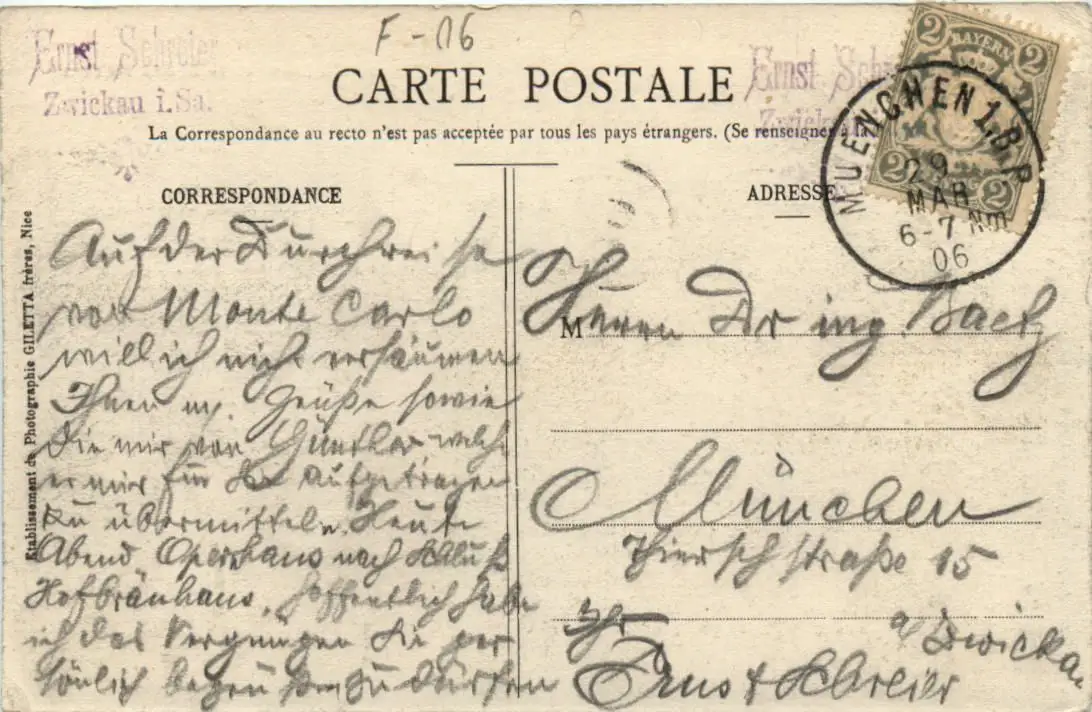 F-06
Ernst Schreier
Zwickau i. Sa.
Ernst Sch
Zwick
CARTE POSTALE
La Correspondance au recto n'est pas acceptée par tous les pays étrangers. (Se renseigner à la
CORRESPONDANCE
ADRESSE
2 BAYERN 2
2 2
MUENCHEN 1. B.P.
29
MAR
6-7 Nm
06
Etablissement de Photographie GILETTA frères, Nice
Auf der Durchreise
von Monte Carlo
will ich nicht versäumen
Ihnen m. Grüße sowie
die mir von Günther welche
er mir für Sie aufgetragen
zu übermitteln. Heute
Abend Opernhaus nach Schluß
Hofbräuhaus, hoffentlich habe
ich das Vergnügen Sie per
sönlich begrüßen zu dürfen
M Herrn Dr ing
München
Thierschstraße 15
Ihr
a/ Zwickau
Ernst Schreier